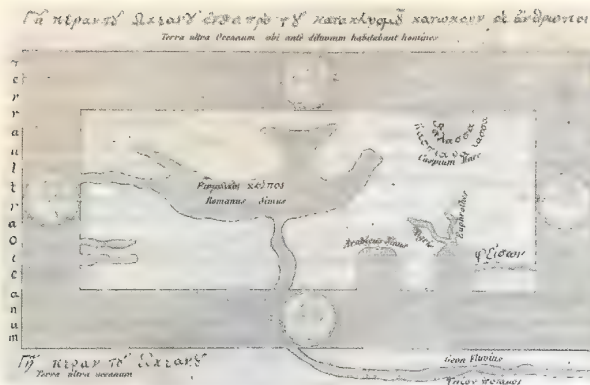 Γῆ πέραν τοῦ Ωκεανοῦ ἔνθα πρὸ τοῦ κατακλυσμοῦ κατῴκουν οἱ ἄνθρωποι
Terra ultra Oceanum ubi antè diluvium habitabant homines
Terra ultra oceanum
Caspium Mare
Ρωμαϊκὸς κόλπος
Romanus Sinus
Arabicus Sinus
Tigris
Euphrathes
Φεῖσων
Γῆ πέραν τοῦ ὠκεανοῦ
Terra ultra oceanum
Geon Fluvius